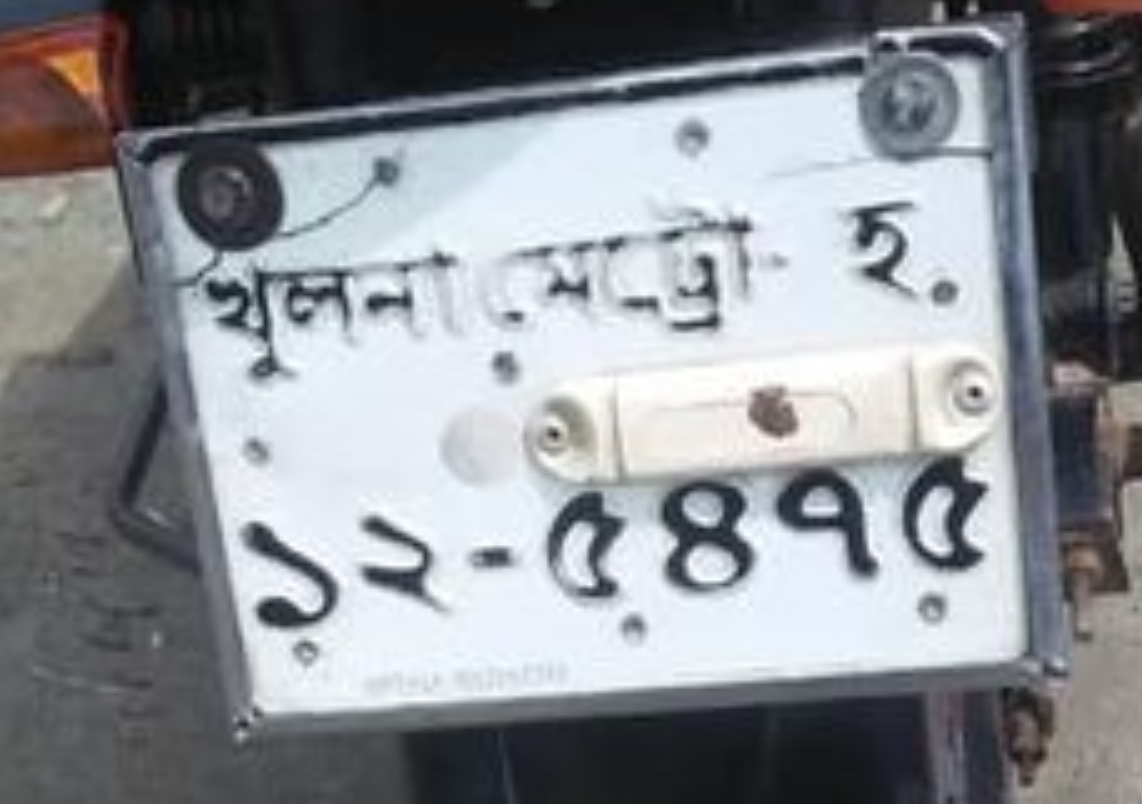 খুলনা মেট্রো- হ
১২-৫৪৭৫